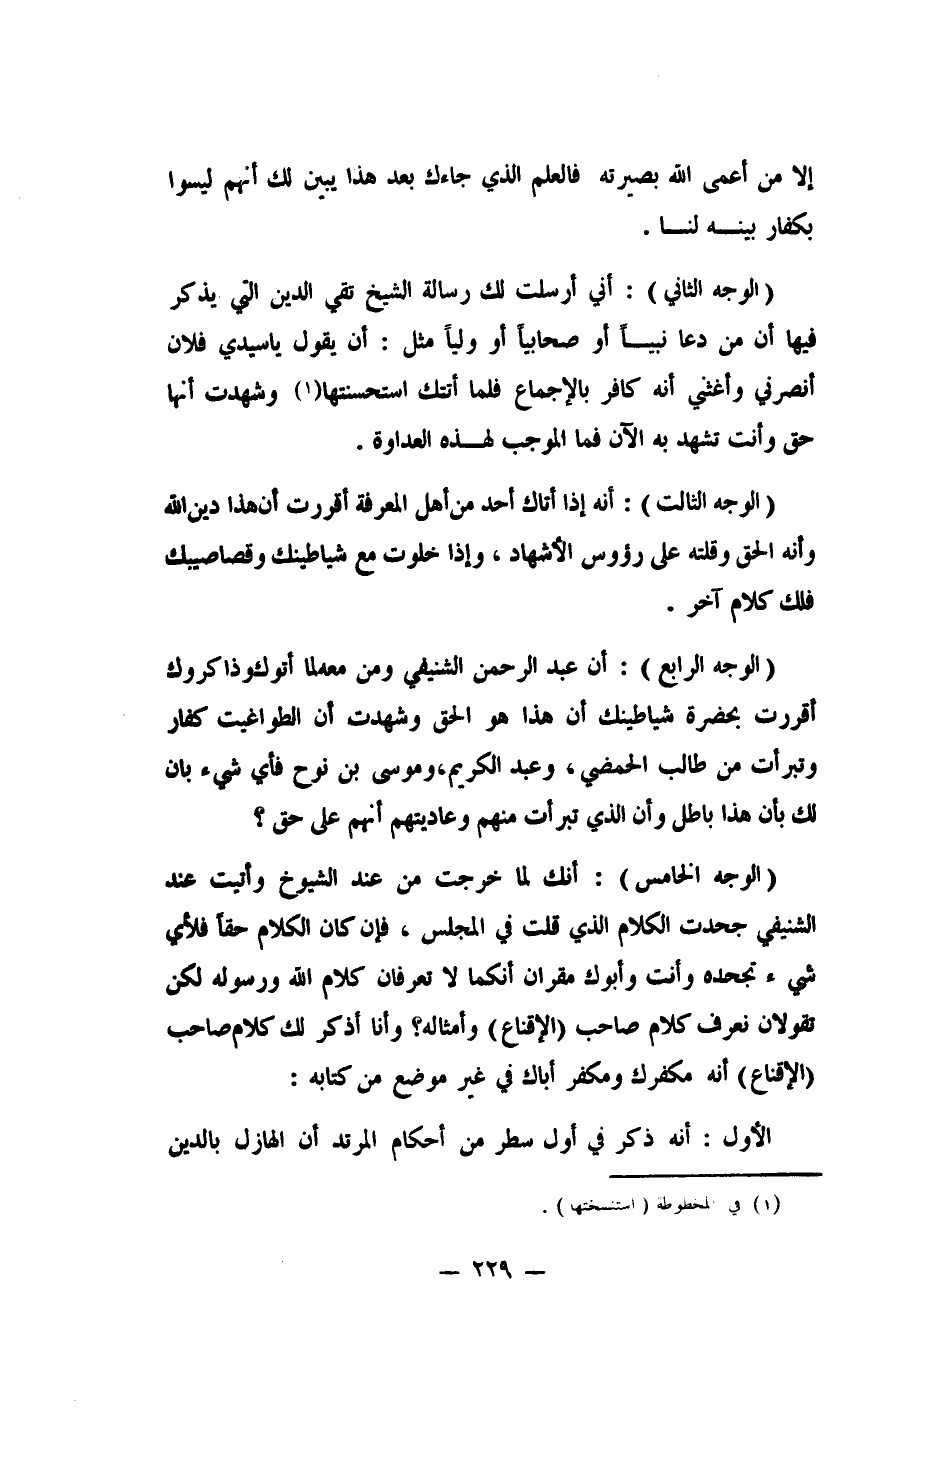 إلا من أعمى الله بصيرته فالعلم الذي جاءك بعد هذا يبين لك أنهم ليسوا
بكفار بينـــه لنـــا .
( الوجه الثاني ) : أني أرسلت لك رسالة الشيخ تقي الدين التي يذكر
فيها أن من دعا نبيـــاً أو صحابياً أو ولياً مثل : أن يقول ياسيدي فلان
أنصرني وأغثني أنه كافر بالإجماع فلما أتتك استحسنتها(١) وشهدت أنها
حق وأنت تشهد به الآن فما الموجب لهـــذه العداوة .
( الوجه الثالث ) : أنه إذا أتاك أحد من أهل المعرفة أقررت أن هذا دين الله
وأنه الحق وقلته على رؤوس الأشهاد ، وإذا خلوت مع شياطينك وقصاصيبك
فلك كلام آخر .
( الوجه الرابع ) : أن عبد الرحمن الشنيفي ومن معه لما أتوك وذاكروك
أقررت بحضرة شياطينك أن هذا هو الحق وشهدت أن الطواغيت كفار
وتبرأت من طالب الحمضي ، وعبد الكريم،وموسى بن نوح فأي شيء بان
لك بأن هذا باطل وأن الذي تبرأت منهم وعاديتهم أنهم على حق ؟
( الوجه الخامس ) : أنك لما خرجت من عند الشيوخ وأتيت عند
الشنيفي جحدت الكلام الذي قلت في المجلس ، فإن كان الكلام حقاً فلأي
شيء تجحده وأنت وأبوك مقران أنكما لا تعرفان كلام الله ورسوله لكن
تقولان نعرف كلام صاحب (الإقناع) وأمثاله؟ وأنا أذكر لك كلام صاحب
(الإقناع) أنه مكفرك ومكفر أباك في غير موضع من كتابه :
الأول : أنه ذكر في أول سطر من أحكام المرتد أن الهازل بالدين
(١) في المخطوطة ( استنسختها ) .
— ٢٢٩ —